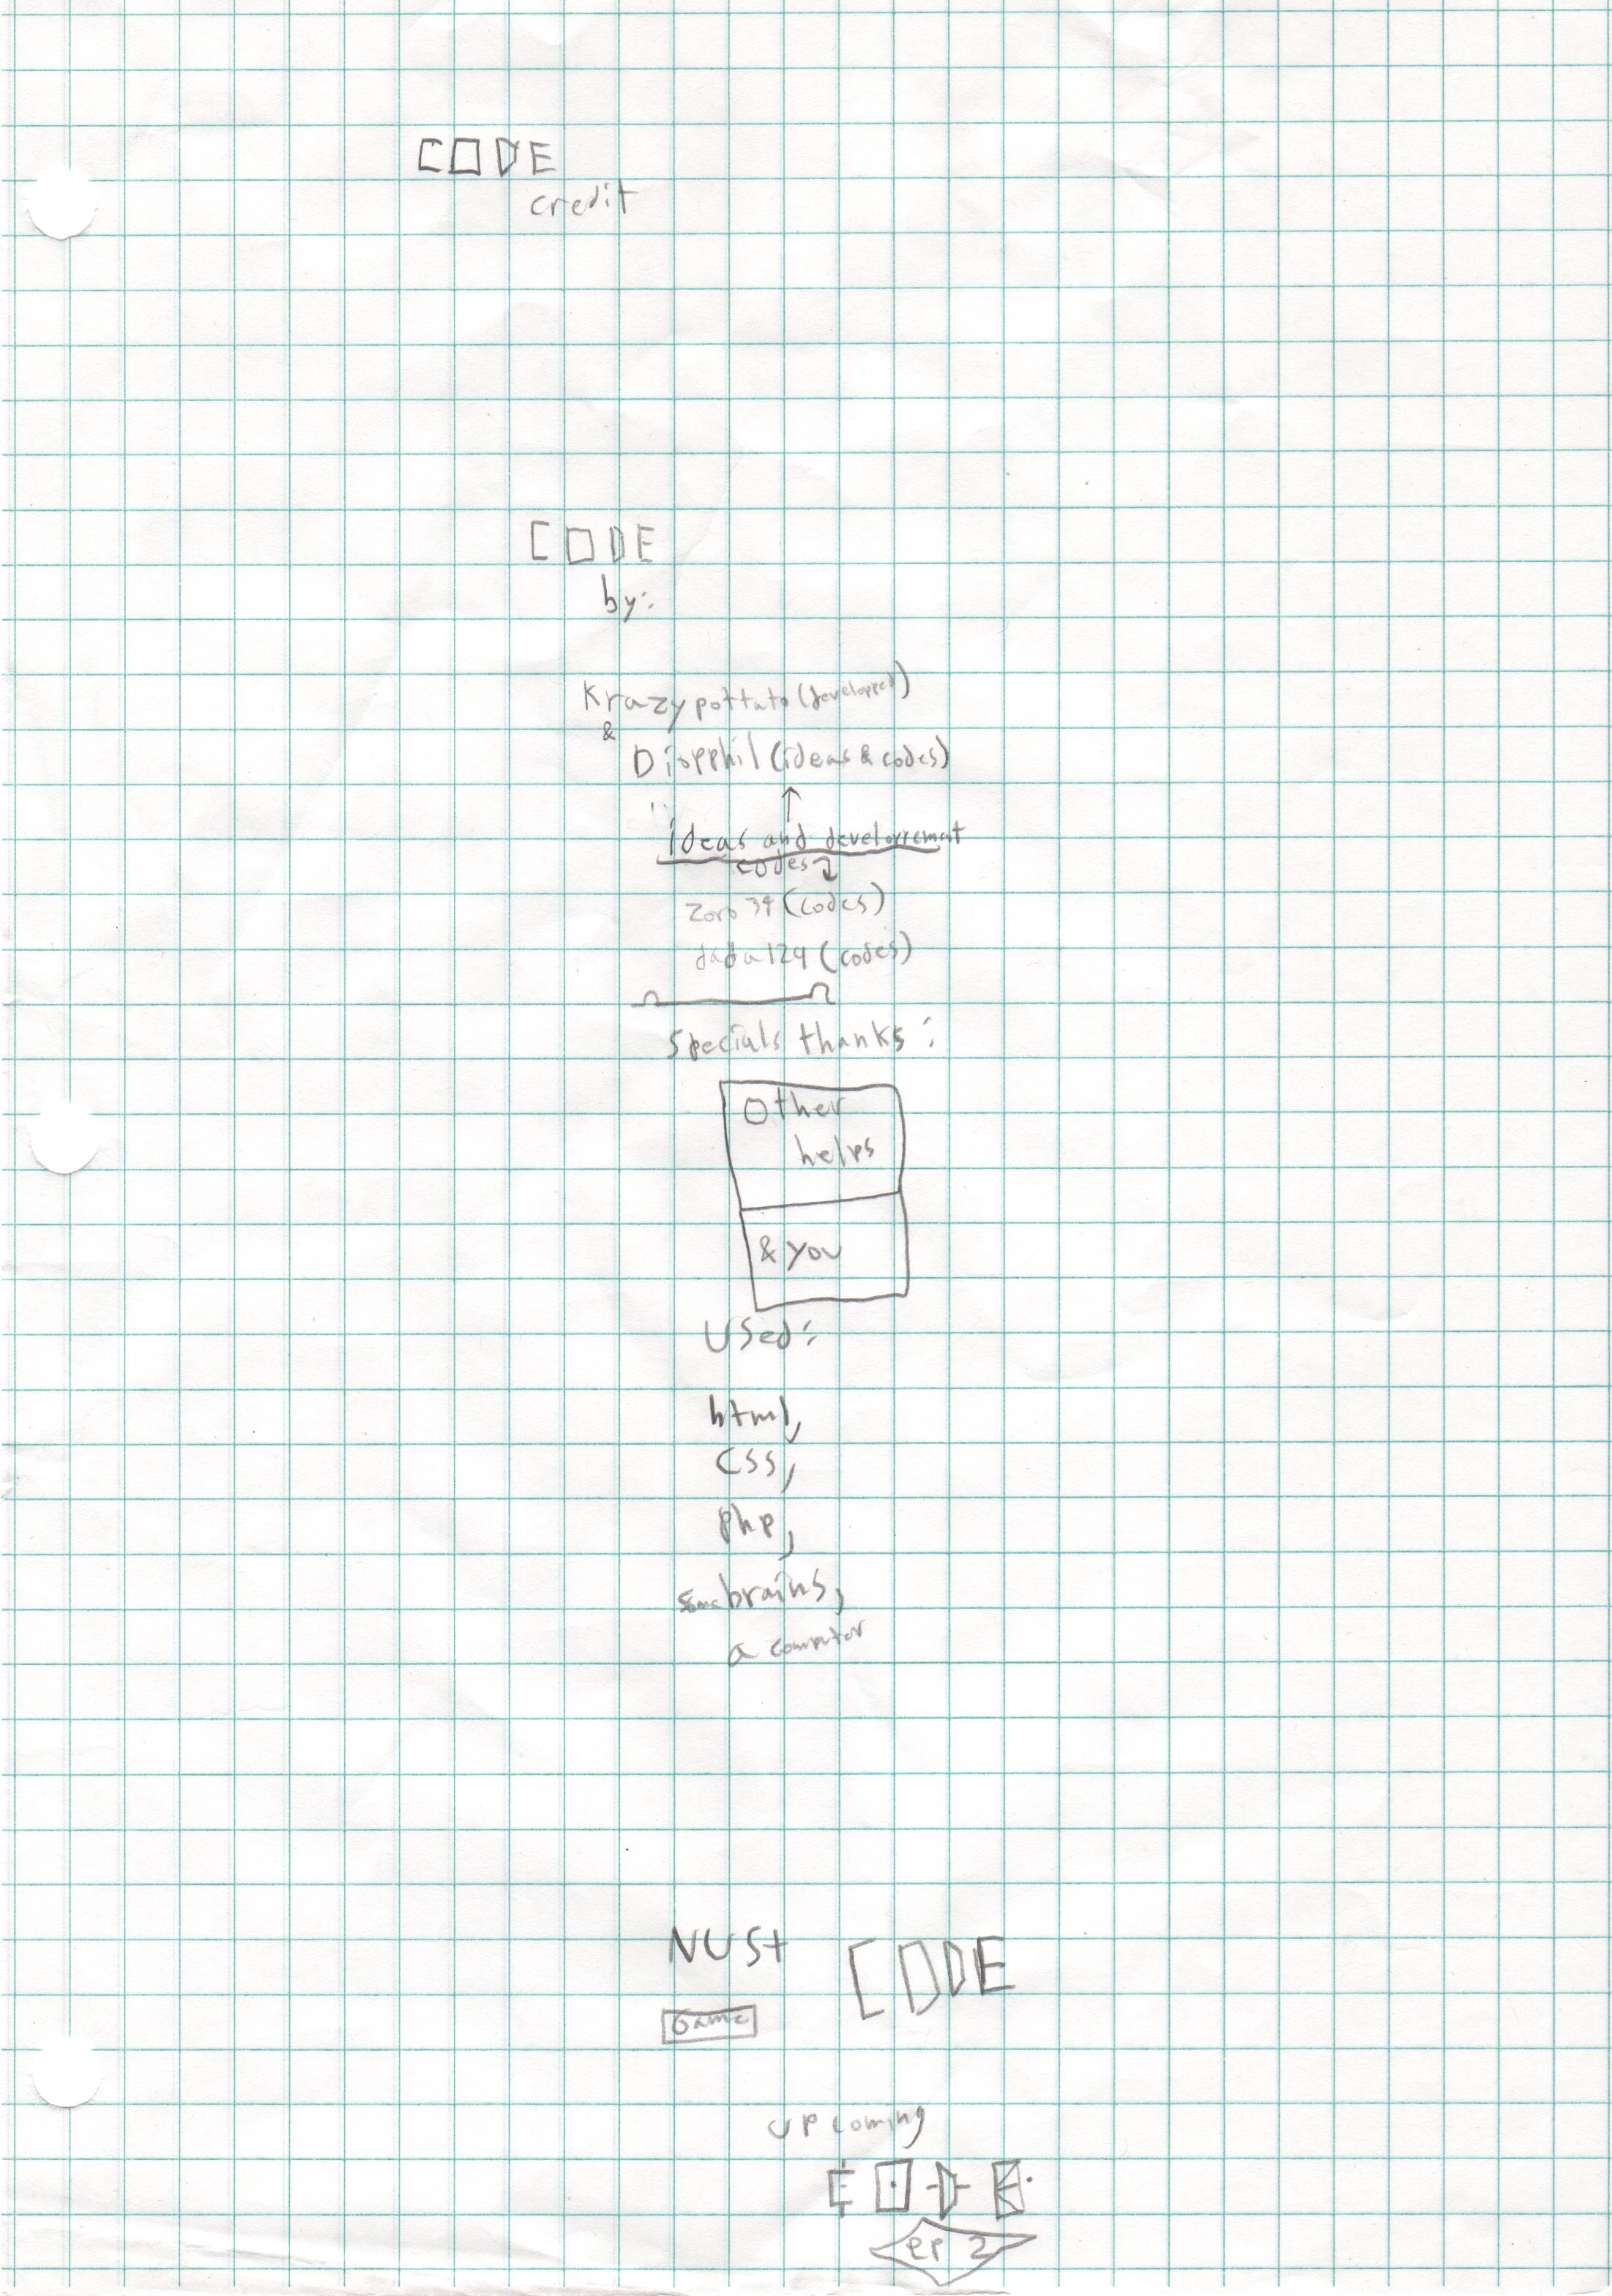 CODE
credit
CODE
by:
Krazypottato (developped)
&
Diopphil (ideas & codes)
↑
ideas and developpement
codes
Zoro34 (codes)
dada124 (codes)
Specials thanks:
Other
helps
& you
Used:
html,
css,
php,
some brains,
a computer
NUSt CODE
Game
upcoming
CODE
ep 2